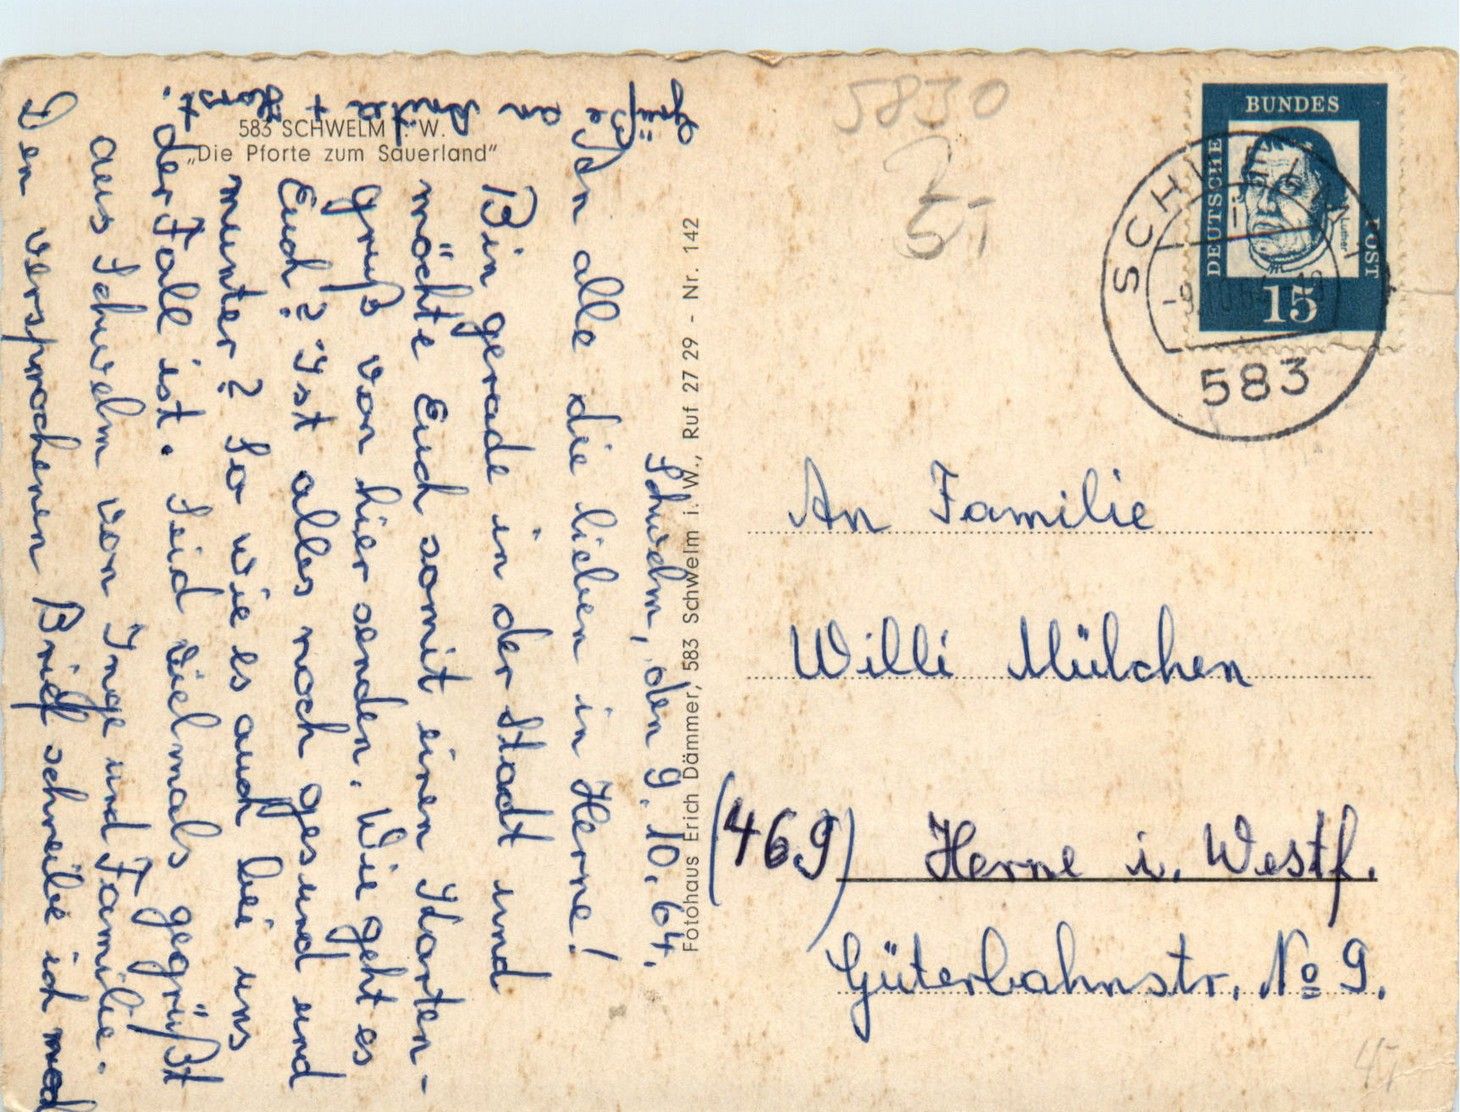 583 SCHWELM i. W.
„Die Pforte zum Sauerland“
Schwelm, den 9. 10. 64.
An alle die lieben in Herne!
Bin gerade in der Stadt und
möchte Euch somit einen Karten-
gruß von hier senden. Wie geht es
Euch? Ist alles noch gesund und
munter? So wie es auch bei uns
der Fall ist. Seid vielmals gegrüßt
aus Schwelm von Inge und Familie.
Den versprochenen Brief schreibe ich
Grüße
an
+
Horst.
Fotohaus Erich Dämmer, 583 Schwelm i. W., Ruf 27 29 - Nr. 142
5830
BUNDES
DEUTSCHE
POST
Luther
15
SCHWELM
583
An Familie
Willi Mülchen
(469) Herne i. Westf.
Güterbahnstr. No 9.